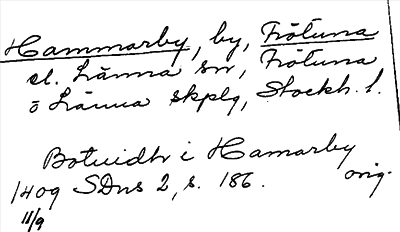 Hammarby, by, Frötuna
el. Länna sn, Frötuna
o Länna skplg, Stockh. l.
Botuidh i Hamarby
1409 SDns 2, s. 186. orig.
11/9